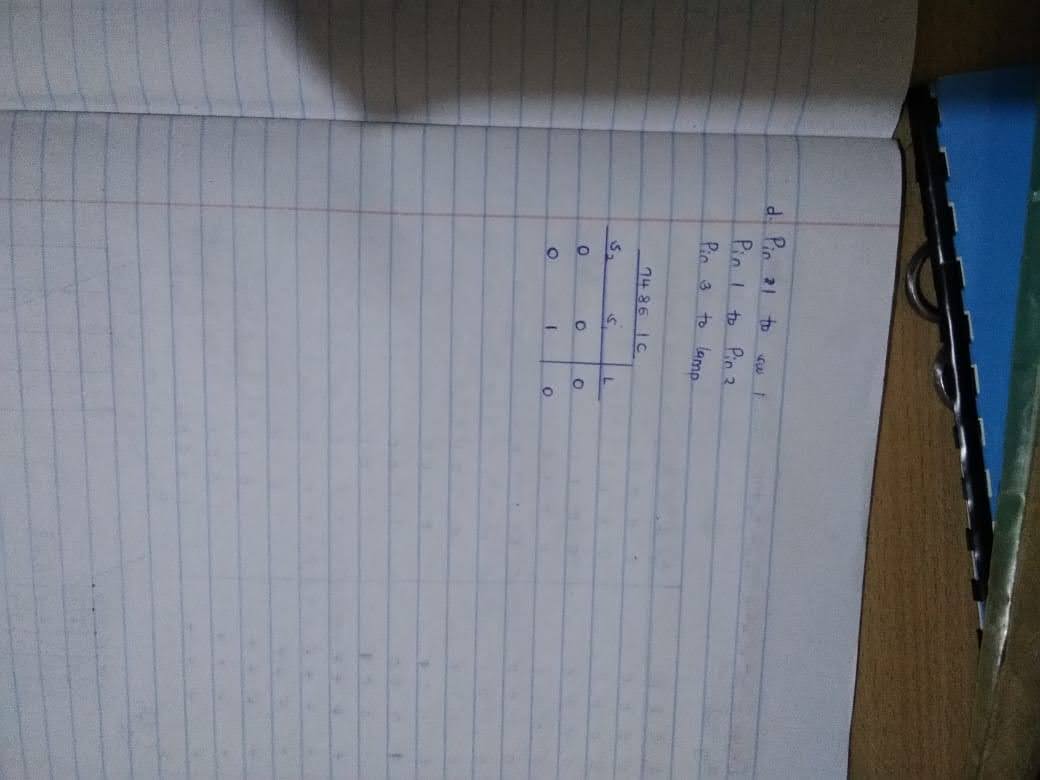 d. Pin 1 to sw 1
Pin 1 to Pin 2
Pin 3 to lamp
7486 IC
S2 S1 L
0 0 0
0 1 0